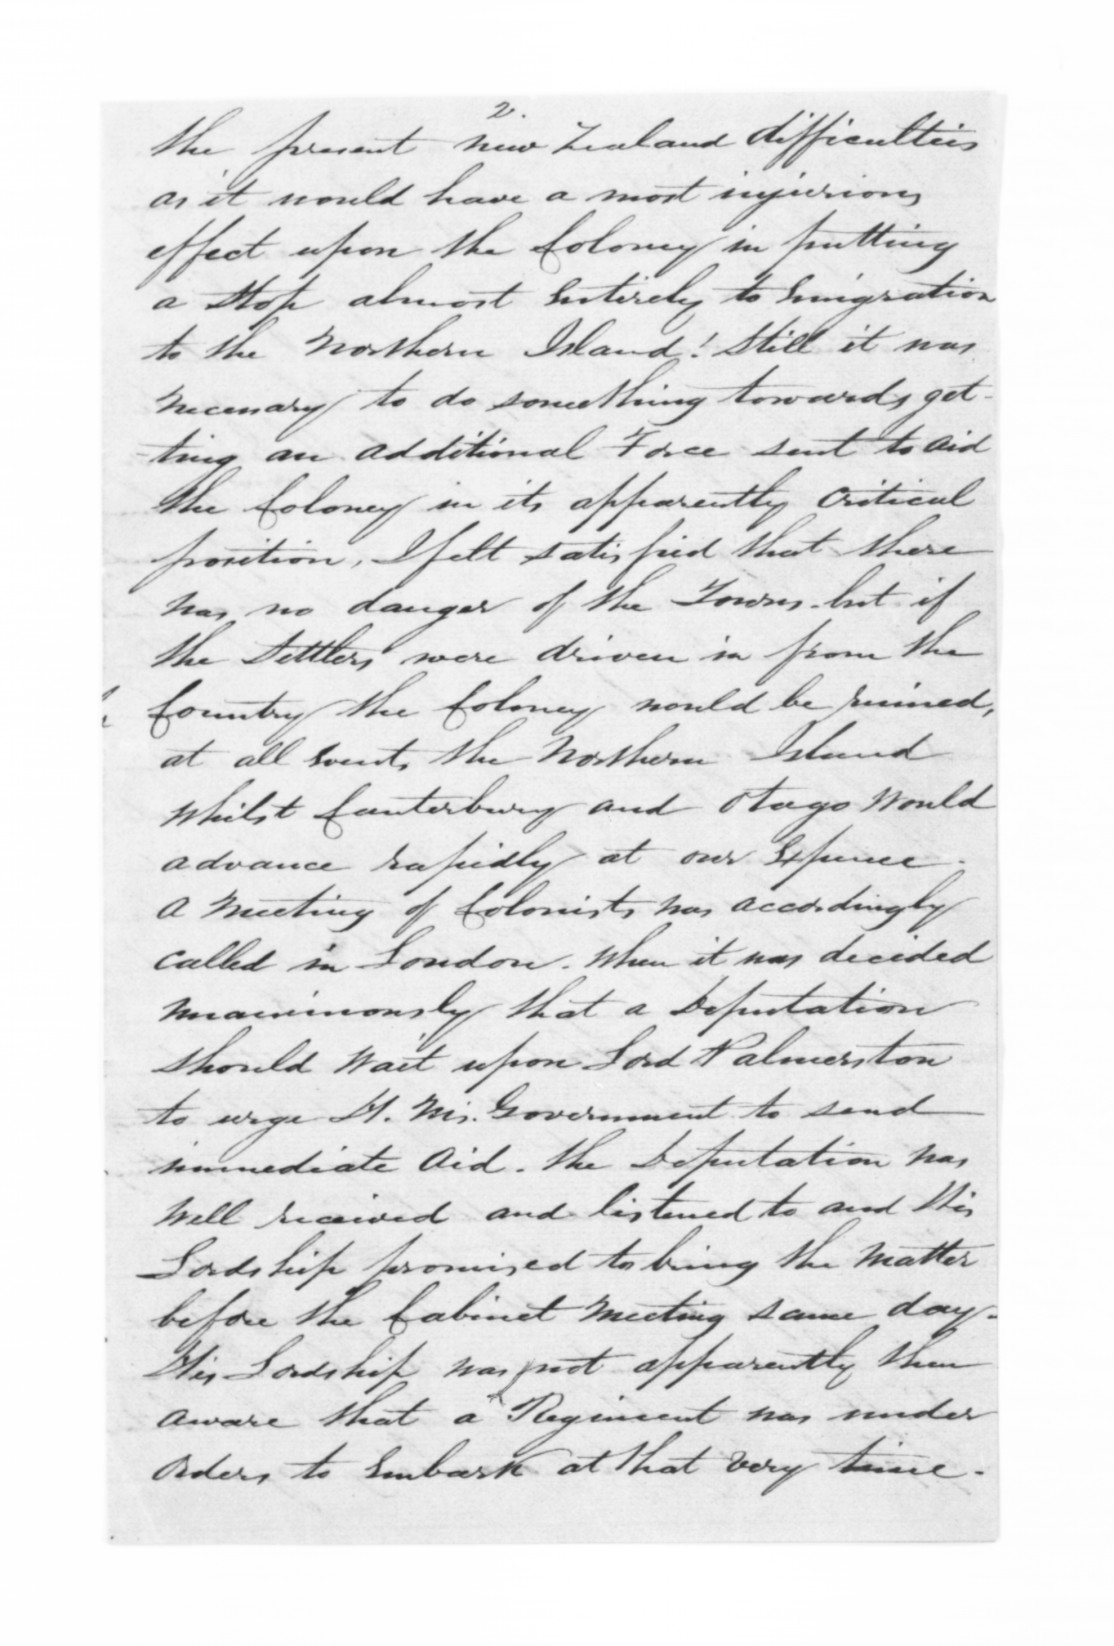 2.
the present New Zealand difficulties
as it would have a most injurious
effect upon the Coloney in putting
a stop almost Entirely to Emigration
to the Northern Island! Still it was
necessary to do something towards get-
ting an additional Force sent to aid
the Coloney in its apparently Critical
position, I felt satisfied that there
was no danger of the Towns but if
the Settlers were driven in from the
Country the Coloney would be ruined,
at all Events the Northern Island
whilst Canterbury and Otago Would
advance rapidly at our Expence.
A Meeting of Colonists was accordingly
Called in London. When it was decided
unanimously that a Deputation
should Wait upon Lord Palmerston
to urge H. Ms. Government to send
immediate Aid. the Deputation was
Well received and listened to and His
Lordship promised to bring the Matter
before the Cabinet Meeting same day.
His Lordship was not apparently then
aware that a Regiment was under
Orders to Embark at that Very time.